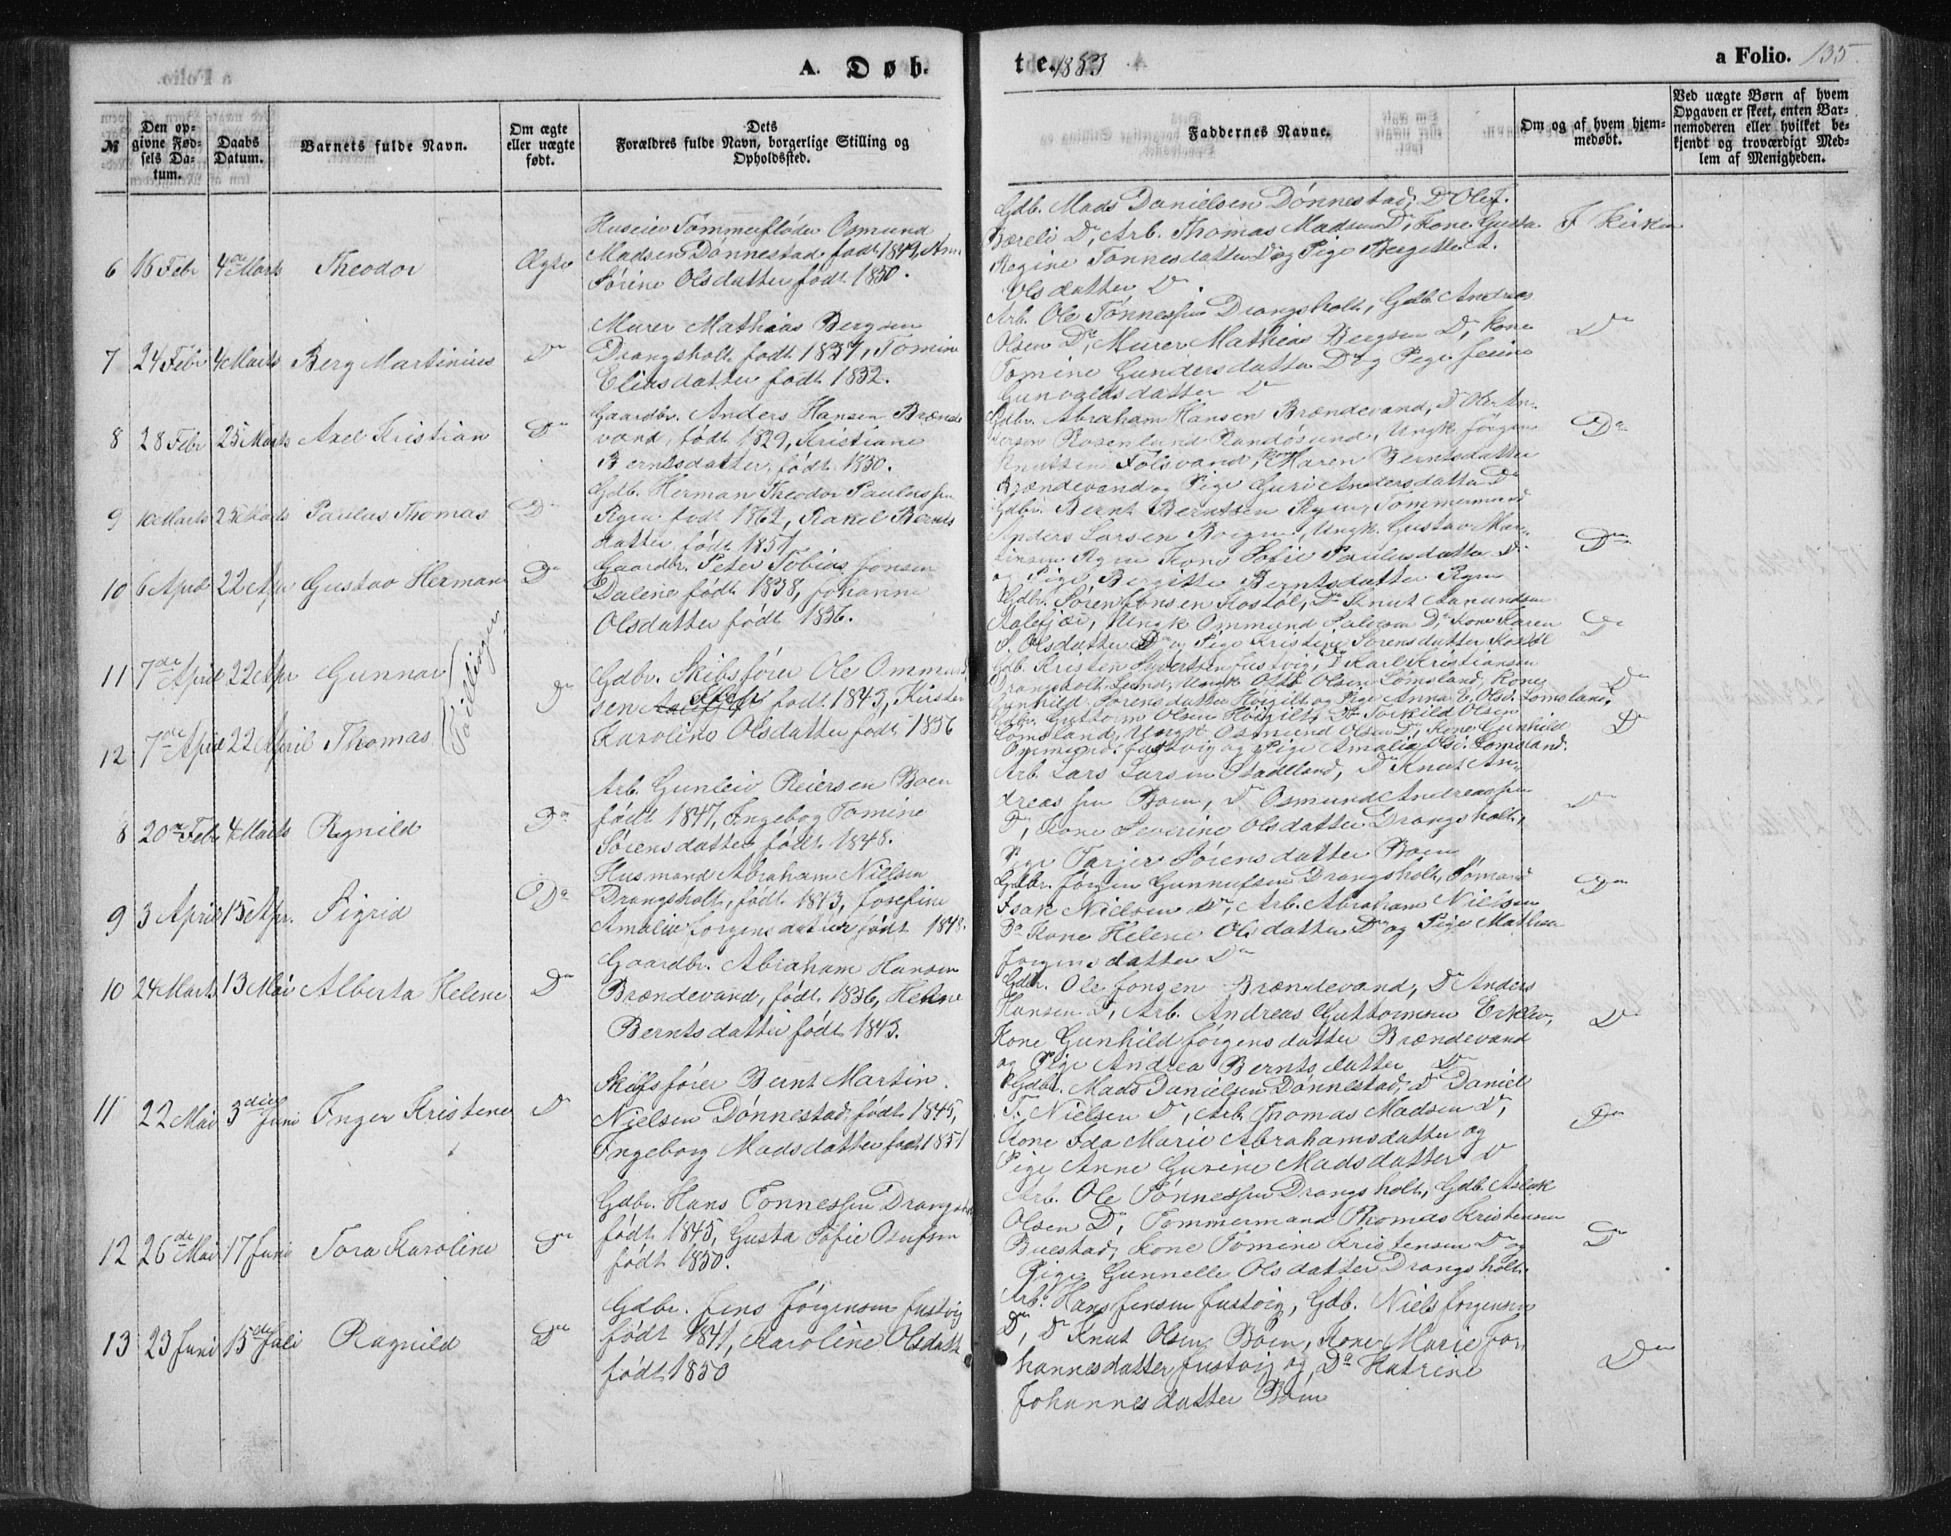 A. Døb-
te. 1883
a Folio. 135
№
Den op-
givne Fød-
sels Da-
tum.
Daabs
Datum.
Barnets fulde Navn.
Om ægte
eller uægte
født.
Dets
Forældres fulde Navn, borgerlige Stilling og
Opholdssted.
Faddernes Navne.
Om og af hvem hjem-
medøbt.
Ved uægte Børn af hvem
Opgaven er skeet, enten Bar-
nemoderen eller hvilket be-
kjendt og troværdigt Med-
lem af Menigheden.
6 16 Febr 4de Marts Theodor Ægte
Huseier Tømmerfløder Osmund
Madsen Dønnestad født 1849,
Sørine Olsdatter født 1850.
Gdb. Mads Danielsen Dønnestad, Do Ole
Bæreli Do, Arb. Thomas Madsen Do, Kone Gusta
Regine Tønnesdatter Do og Pige Bergitte A.
Olsdatter Do.
I Kirken
7 24 Febr 4 Marts Berg Martinius Do
Murer Mathias Bergsen
Drangsholt født 1837, Tomine
Eliasdatter født 1832.
Arb. Ole Tønnessen Drangsholt, Gdb. Andreas
Olsen Do, Murer Mathias Bergsen Do, Kone
Tomine Gundersdatter Do og Pige
Gunvaldsdatter Do
Do
8 28 Febr 25 Marts Axel Kristian Do
Gaardbr. Anders Hansen Brænde-
vand, født 1829, Kristiane
Berntsdatter, født 1850.
Gdbr. Abraham Hansen Brændevand, Do Ole An-
dersen Rosenlund Randøsund, Ungk Jørgen
Knutsen Fölsvand, Kone Maren Berntsdatter
Brændevand og Pige Guri Andersdatter Do
Do
9 10 Marts 25 Marts Paulus Thomas Do
Gdb. Herman Theodor Paulussen
Ryen født 1862, Rakel Bernts
datter født 1857
Gdbr. Bernt Berntsen Ryen, Tømmermand
Anders Larsen Boen, Ungk. Gustav Mar-
tinsen Ryen Kone Sofie Paulusdatter Do
og Pige Bergitte Berntsdatter Ryen
Do
10 6 April 22 Apr Gustav Herman Do
Gaardbr. Peter Tobias Jonsen
Dalene født 1838, Johanne
Olsdatter født 1836.
Gdbr. Søren Jonsen Kostøl, Do Knut Aanundsen
Kalefjær, Ungk Ommund Salveson Do, Kone Karen
S. Olsdatter Do og Pige Kristine Sørensdatter Kostøl
Do
11 7de April 22 Apr Gunnar
(Tvillinger
12 7de April 22 April Thomas
Do
Gdbr. Skibsfører Ole Ommund
sen født 1843, Kirsten
Karoline Olsdatter født 1856
Gdb. Kristen Justvig, Do Karl Kristiansen
Drangsholt Lund, Ungk Olsen Lomsland, Kone
Gunhild Sørensdatter Høigilt og Pige Anna E. Olsd. Lomsland,
Gdbr. Guttorm Olsen Høigilt, Do Torkild Olsen
Lomsland, Ungk Osmund Olsen Do, Kone Gunhild
Ommund. Justvig og Pige Amalia Olsd. Lomsland.
Do
Do
8 20de Febr 4 Marts Ragnild Do
Arb. Gunleiv Reiersen Boen
født 1847, Ingebog Tomine
Sørensdatter født 1848.
Arb Lars Larsen Stadeland, Do Knut An-
dreassen Boen, Do Osmund Andreassen
Do, Kone Severine Olsdatter Drangsholt,
Pige Tarjer Sørensdatter Boen
Do
9 3 April 15 Apr. Sigrid Do
Husmand Abraham Nielsen
Drangsholt, født 1843, Josefine
Amalie Jørgensdatter født 1848.
Gdbr. Jørgen Gunnufsen Drangsholt, Sømand
Isak Nielsen Do, Arb. Abraham Nielsen
Do Kone Helene Olsdatter Do og Pige Mathea
Jørgensdatter Do
Do
10 24 Marts 13 Mai Alberta Helene Do
Gaardbr. Abraham Hansen
Brændevand, født 1836, Helene
Berntsdatter født 1843.
Gdbr. Ole Jonsen Brændevand, Do Anders
Hansen Do, Arb. Andreas Guttormsen Eiklev,
Kone Gunhild Jørgensdatter Brændevand
og Pige Andrea Berntsdatter Do
Do
11 22 Mai 3die Juni Inger Kristene Do
Skibsfører Bernt Martin
Nielsen Dønnestad født 1845,
Ingeborg Madsdatter født 1851
Gdbr. Mads Danielsen Dønnestad, Do Daniel
T. Nielsen Do, Arb. Thomas Madsen Do,
Kone Ida Marie Abrahamsdatter og
Pige Anne Gurine Madsdatter Do
Do
12 26de Mai 17 Juni Tora Karoline Do
Gdbr. Hans Tønnessen Drangsholt
født 1845, Gusta Sofie Osufsen
født 1850.
Arb. Ole Tønnessen Drangsholt, Gdb. Aslak
Olsen Do, Tømmermand Thomas Kristensen
Buestad, Kone Tomine Kristensen Do og
Pige Gunnelle Olsdatter Drangsholt
Do
13 23 Juni 15de Juli Ragnild Do
Gdbr. Jens Jørgensen Justvig
født 1841, Karoline Olsdatt
født 1850
Arb. Hans Jensen Justvig, Gdb. Niels Jørgensen
Do, Do Knut Olsen Boen, Kone Marie Jo-
hannesdatter Justvig og Do Katrine
Johannesdatter Boen
Do